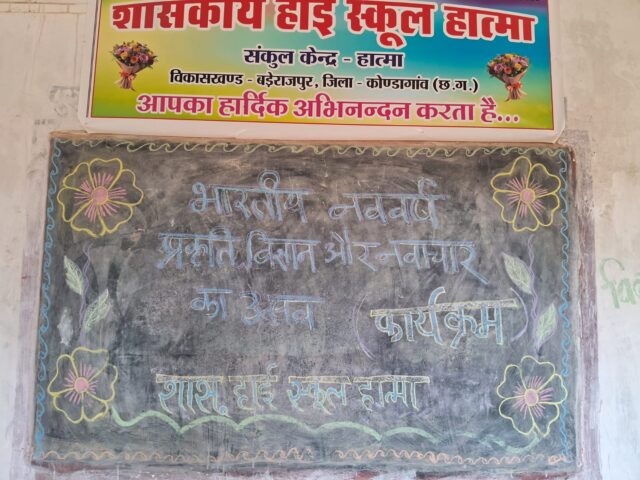 शासकीय हाई स्कूल हात्मा
संकुल केन्द्र - हात्मा
विकासखण्ड - बड़ेराजपुर, जिला - कोण्डागांव (छ.ग.)
आपका हार्दिक अभिनन्दन करता है...
भारतीय नववर्ष
प्रकृति विज्ञान और नवाचार
का उत्सव (कार्यक्रम)
शास. हाई स्कूल हात्मा